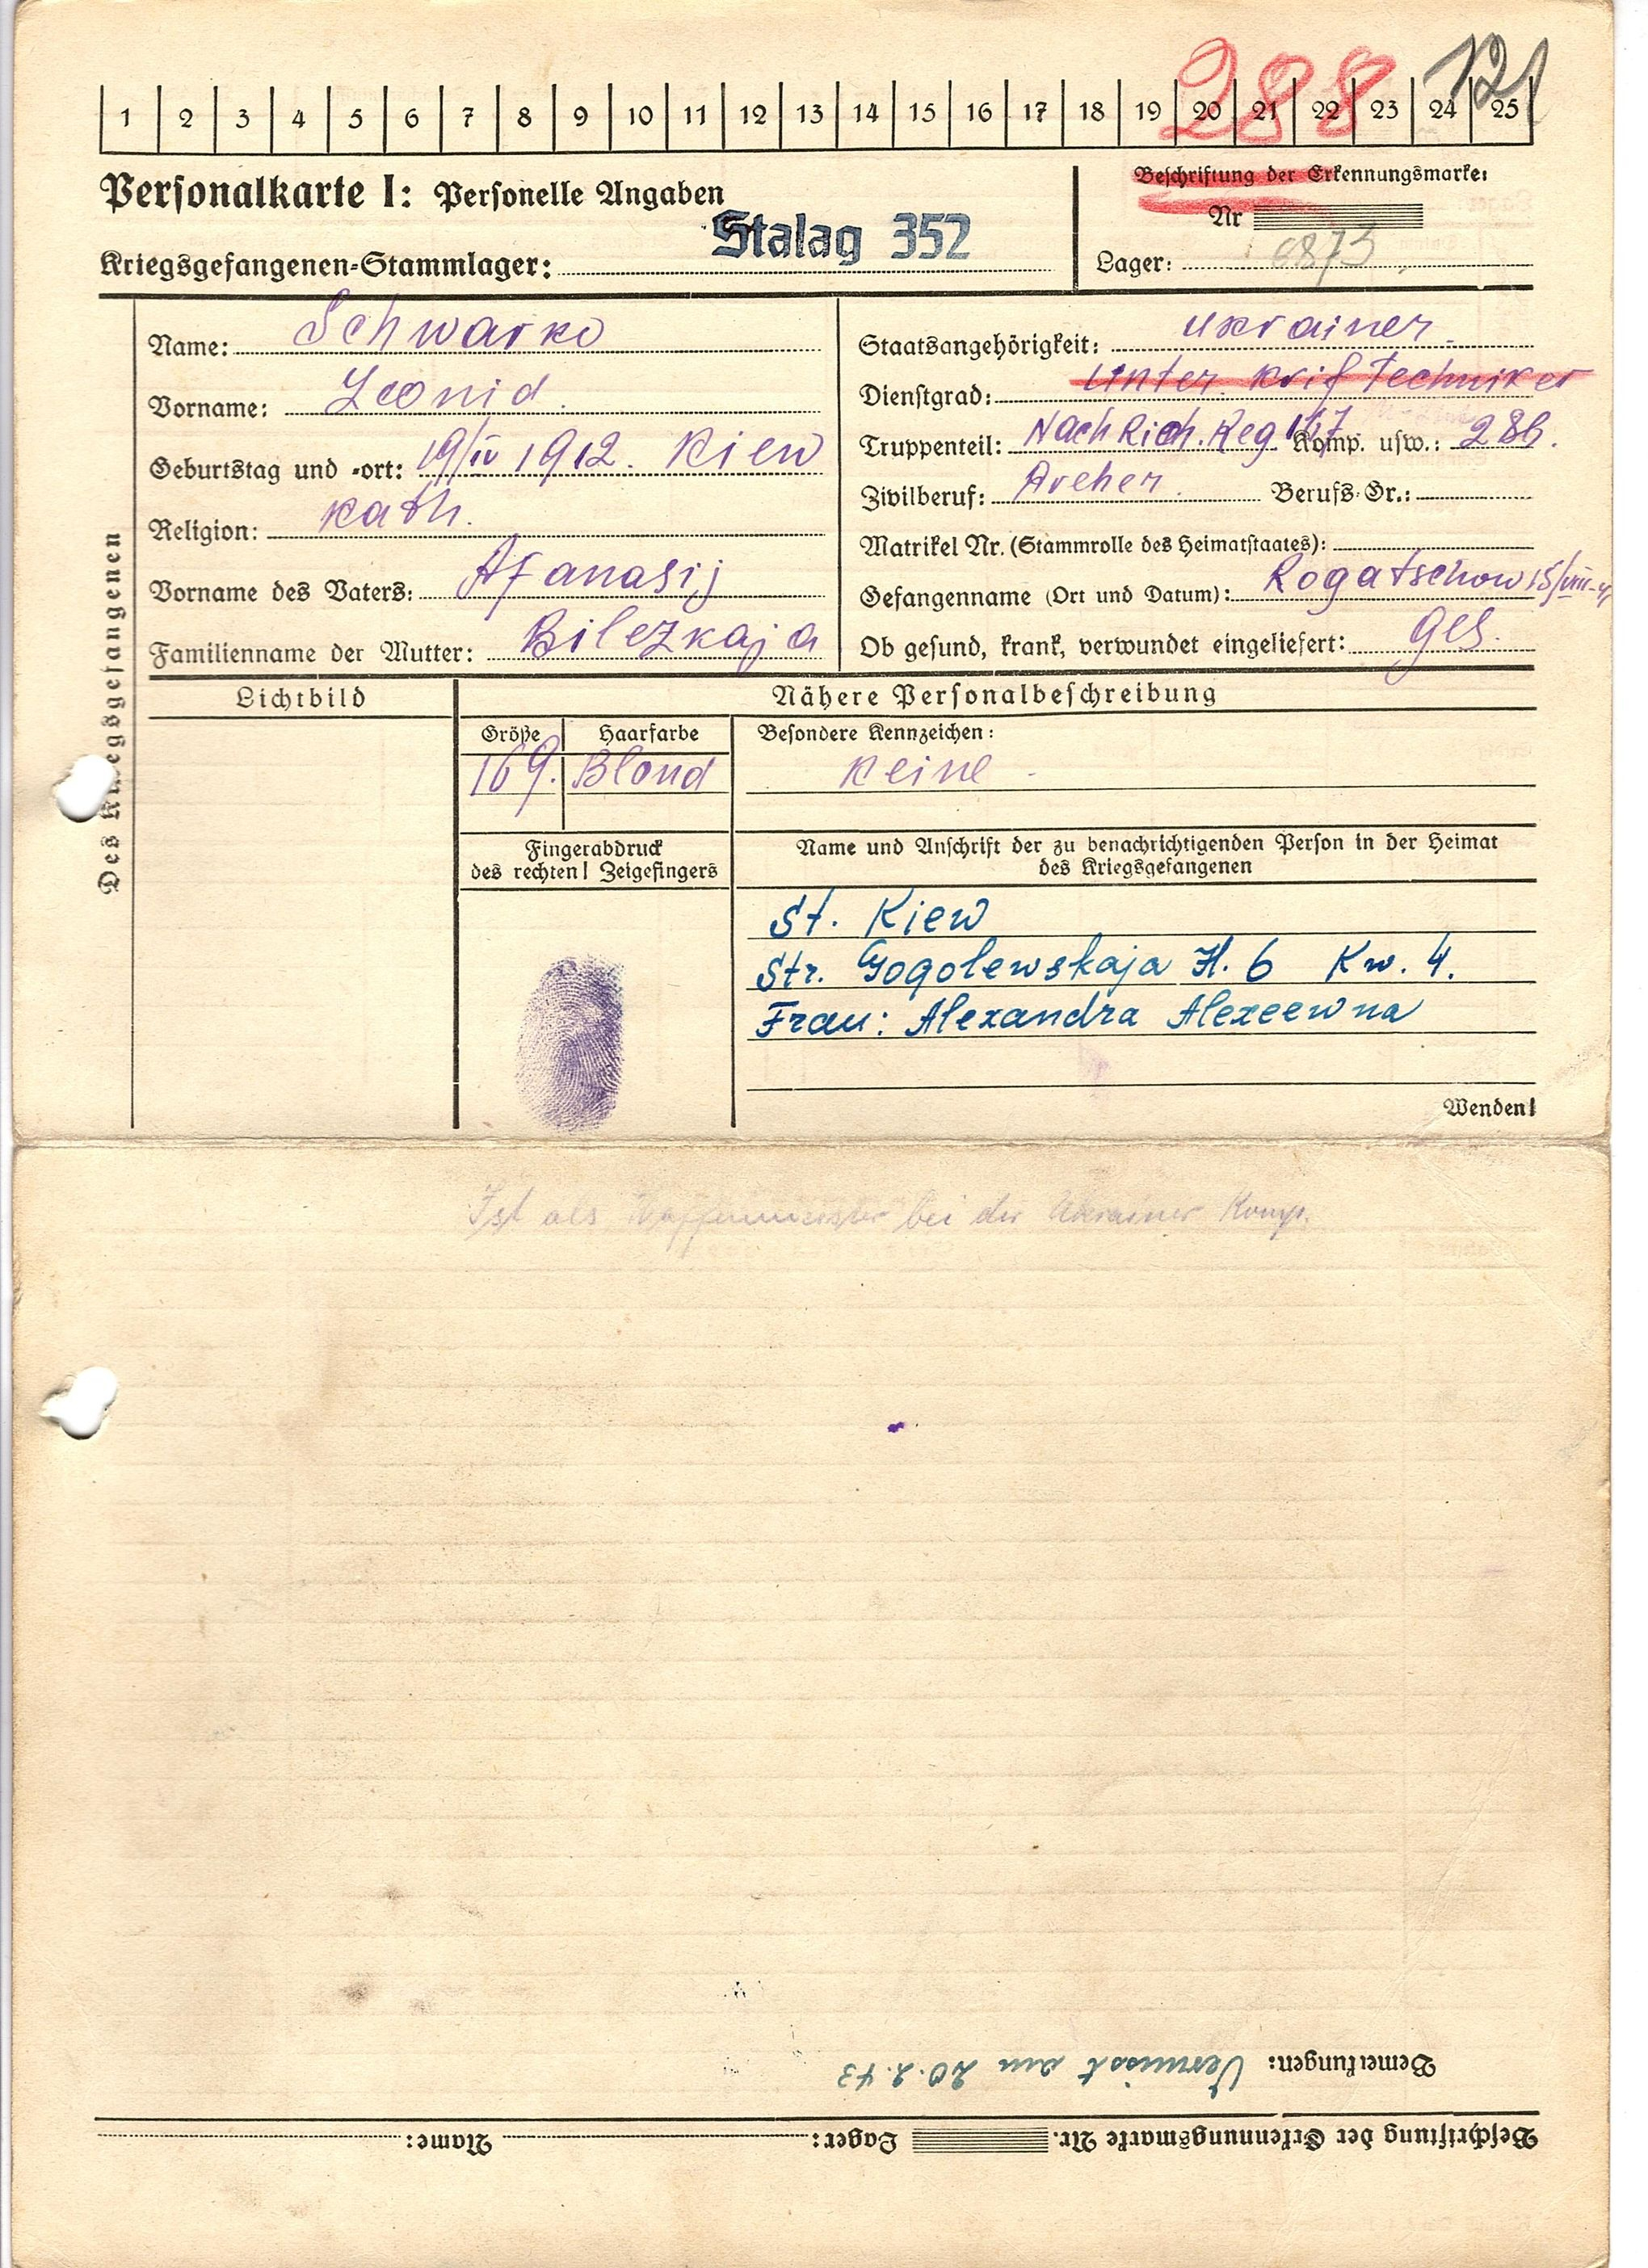 288 121
1 2 3 4 5 6 7 8 9 10 11 12 13 14 15 16 17 18 19 20 21 22 23 24 25
Personalkarte I: Personelle Angaben
Beschriftung der Erkennungsmarke:
Nr
Stalag 352
Kriegsgefangenen-Stammlager:
Lager: 6873
Des Kriegsgefangenen
Name: Schwarko
Vorname: Leonid.
Geburtstag und -ort: 19/IV 1912. Kiew
Religion: Kath.
Vorname des Vaters: Afanasij
Familienname der Mutter: Bilezkaja
Staatsangehörigkeit: Ukrainer.
Dienstgrad: Unter. Krif Techniker
Truppenteil: NachRich. Reg 117 Komp. usw.: 286.
Zivilberuf: Dreher. Berufs-Gr.:
Matrikel Nr. (Stammrolle des Heimatstaates):
Gefangenname (Ort und Datum): Rogatschow 15/VIII-41
Ob gesund, krank, verwundet eingeliefert: ges.
Lichtbild
Nähere Personalbeschreibung
Größe Haarfarbe
169. Blond
Besondere Kennzeichen:
Keine -
Fingerabdruck
des rechten! Zeigefingers
Name und Anschrift der zu benachrichtigenden Person in der Heimat
des Kriegsgefangenen
St. Kiew
Str. Gogolewskaja H. 6 Kw. 4.
Frau: Alexandra Alexeewna
Wenden!
Ist als Waffenmeister bei der Ukrainer Komp.
Bemerkungen: Vermisst am 20.2.43
Beschriftung der Erkennungsmarke Nr. Lager: Name: